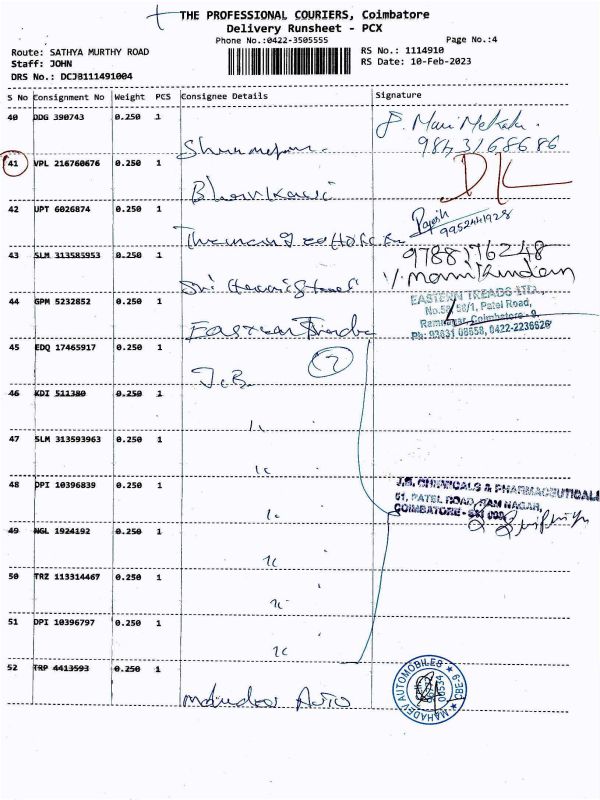 THE PROFESSIONAL COURIERS, Coimbatore
Delivery Runsheet - PCX
Phone No.:0422-3505555
Page No.:4
Route: SATHYA MURTHY ROAD
RS No.: 1114910
Staff: JOHN
RS Date: 10-Feb-2023
DRS No.: DCJB111491004
S No Consignment No Weight PCS Consignee Details Signature
40 DDG 390743 0.250 1
9843168686
41 VPL 216760676 0.250 1
42 UPT 6026874 0.250 1
Rajesh
9952441928
43 SLM 313585953 0.250 1
9788176248
V. Manikandan
44 GPM 5232852 0.250 1
EASTERN TREADS LTD.,
No.56, 56/1, Patel Road,
Ramnagar, Coimbatore - 9.
Ph: 93631 08658, 0422-2236626
45 EDQ 17465917 0.250 1
7
J.B.
46 KDI 511380 0.250 1
47 SLM 313593963 0.250 1
48 DPI 10396839 0.250 1
J.B. CHEMICALS & PHARMACEUTICALS
51, PATEL ROAD, RAM NAGAR,
COIMBATORE - 641 009
49 NGL 1924192 0.250 1
50 TRZ 113314467 0.250 1
51 DPI 10396797 0.250 1
52 TRP 4413593 0.250 1
Auto
MAHADEV AUTOMOBILES
CBE-9